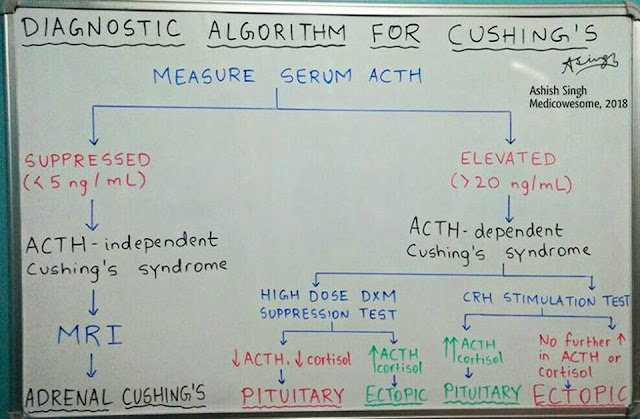 DIAGNOSTIC ALGORITHM FOR CUSHING'S
ASingh
Ashish Singh
Medicowesome, 2018
MEASURE SERUM ACTH
SUPPRESSED
(< 5 ng/mL)
ACTH-independent
Cushing's syndrome
MRI
ADRENAL CUSHING'S
ELEVATED
(> 20 ng/mL)
ACTH-dependent
Cushing's syndrome
HIGH DOSE DXM
SUPPRESSION TEST
↓ ACTH, ↓ cortisol
PITUITARY
↑ ACTH
cortisol
ECTOPIC
CRH STIMULATION TEST
↑↑ ACTH
cortisol
PITUITARY
No further ↑
in ACTH or
cortisol
ECTOPIC